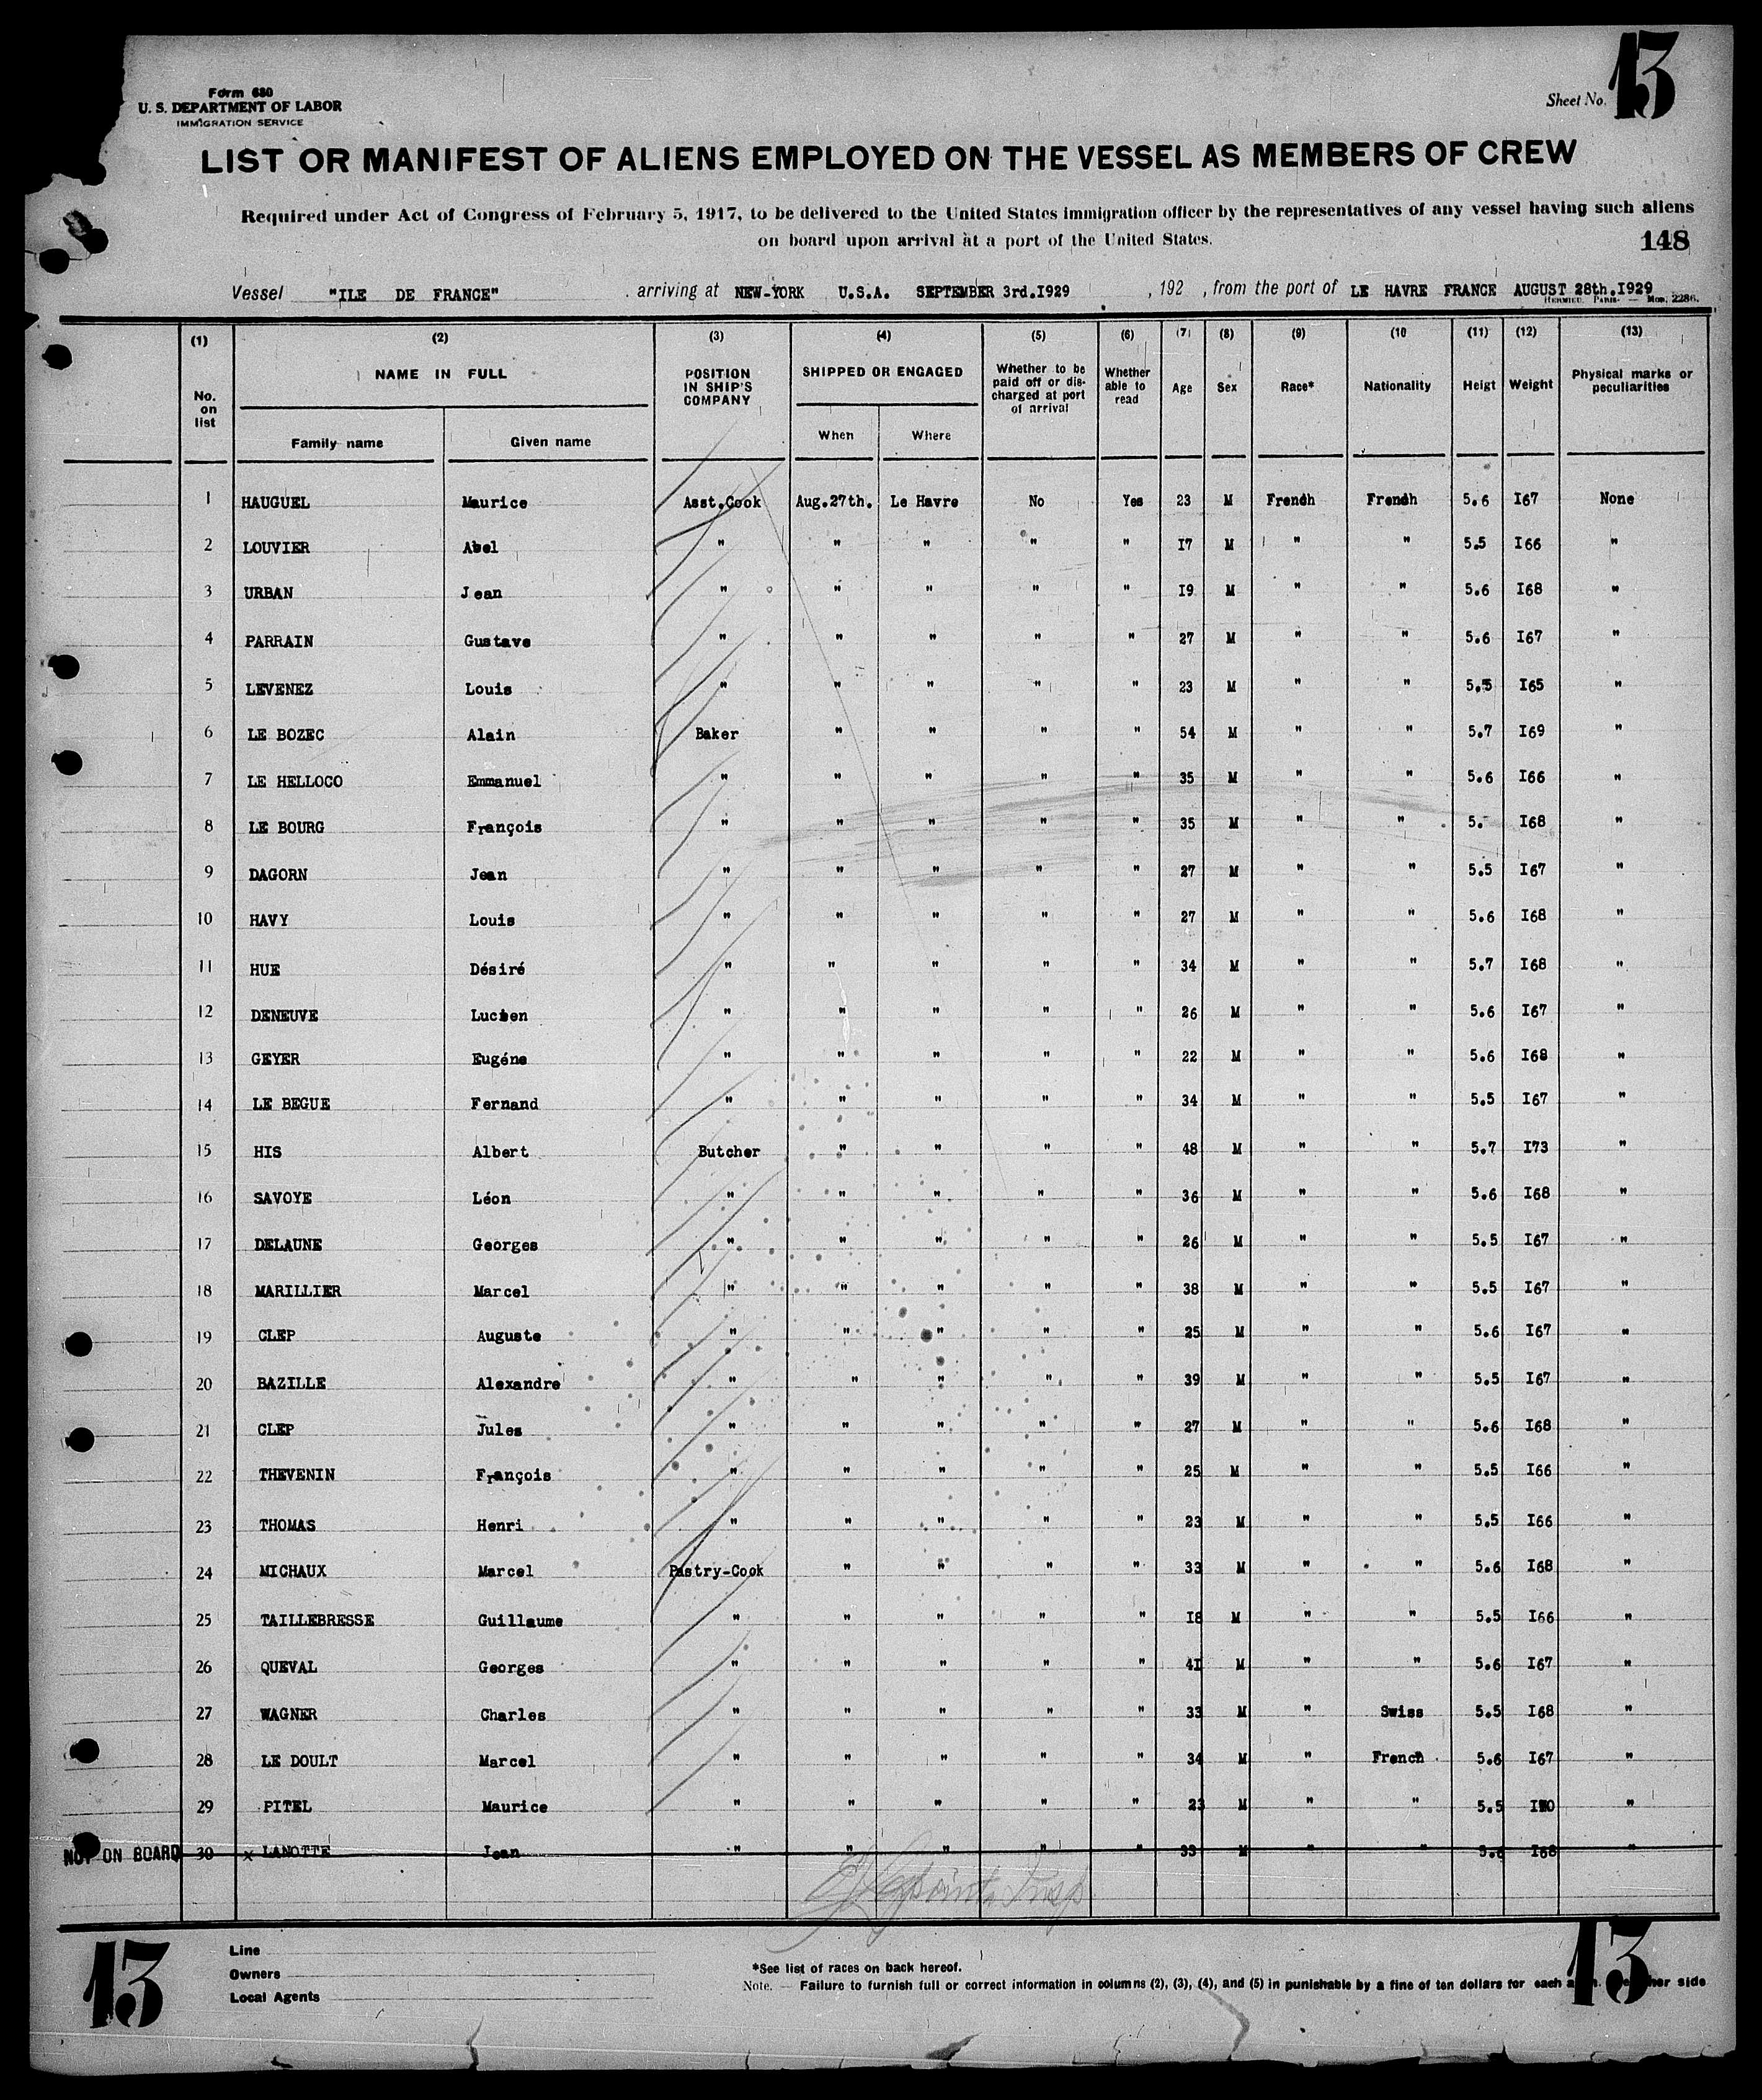 Form 680
U. S. DEPARTMENT OF LABOR
IMMIGRATION SERVICE
Sheet No. 13
LIST OR MANIFEST OF ALIENS EMPLOYED ON THE VESSEL AS MEMBERS OF CREW
Required under Act of Congress of February 5, 1917, to be delivered to the United States immigration officer by the representatives of any vessel having such aliens
on board upon arrival at a port of the United States.
148
Vessel "ILE DE FRANCE" . arriving at NEW-YORK U.S.A. SEPTEMBER 3rd.I929 , 192 , from the port of LE HAVRE FRANCE AUGUST 28th.I929
HERMIEU. PARIS. — Mod. 2286.
(1) (2) (3) (4) (5) (6) (7) (8) (9) (10 (11) (12) (13)
No. on list NAME IN FULL POSITION IN SHIP'S COMPANY SHIPPED OR ENGAGED Whether to be paid off or dis-charged at port of arrival Whether able to read Age Sex Race* Nationality Heigt Weight Physical marks or peculiarities
Family name Given name When Where
1 HAUGUEL Maurice Asst.Cook Aug.27th. Le Havre No Yes 23 M French French 5.6 I67 None
2 LOUVIER Abel " " " " " I7 M " " 5.5 I66 "
3 URBAN Jean " " " " " I9 M " " 5.6 I68 "
4 PARRAIN Gustave " " " " " 27 M " " 5.6 I67 "
5 LEVENEZ Louis " " " " " 23 M " " 5.5 I65 "
6 LE BOZEC Alain Baker " " " " 54 M " " 5.7 I69 "
7 LE HELLOCO Emmanuel " " " " " 35 M " " 5.6 I66 "
8 LE BOURG François " " " " " 35 M " " 5. I68 "
9 DAGORN Jean " " " " " 27 M " " 5.5 I67 "
10 HAVY Louis " " " " " 27 M " " 5.6 I68 "
11 HUE Désiré " " " " " 34 M " " 5.7 I68 "
12 DENEUVE Lucien " " " " " 26 M " " 5.6 I67 "
13 GEYER Eugéne " " " " " 22 M " " 5.6 I68 "
14 LE BEGUE Fernand " " " " " 34 M " " 5.5 I67 "
15 HIS Albert Butcher " " " " 48 M " " 5.7 I73 "
16 SAVOYE Léon " " " " " 36 M " " 5.6 I68 "
17 DELAUNE Georges " " " " " 26 M " " 5.5 I67 "
18 MARILLIER Marcel " " " " " 38 M " " 5.5 I67 "
19 CLEP Auguste " " " " " 25 M " " 5.6 I67 "
20 BAZILLE Alexandre " " " " " 39 M " " 5.5 I67 "
21 CLEP Jules " " " " " 27 M " " 5.6 I68 "
22 THEVENIN François " " " " " 25 M " " 5.5 I66 "
23 THOMAS Henri " " " " " 23 M " " 5.5 I66 "
24 MICHAUX Marcel Pastry-Cook " " " " 33 M " " 5.6 I68 "
25 TAILLEBRESSE Guillaume " " " " " I8 M " " 5.5 I66 "
26 QUEVAL Georges " " " " " 4I M " " 5.6 I67 "
27 WAGNER Charles " " " " " 33 M " Swiss 5.5 I68 "
28 LE DOULT Marcel " " " " " 34 M " French 5.6 I67 "
29 PITEL Maurice " " " " " 23 M " " 5.5 "
NOT ON BOARD 30 x LANOTTE Jean " " " " " 33 M " " 5.6 I68 "
Insp
13 13
Line
Owners
Local Agents
*See list of races on back hereof.
Note. — Failure to furnish full or correct information in columns (2), (3), (4), and (5) in punishable by a fine of ten dollars for each side